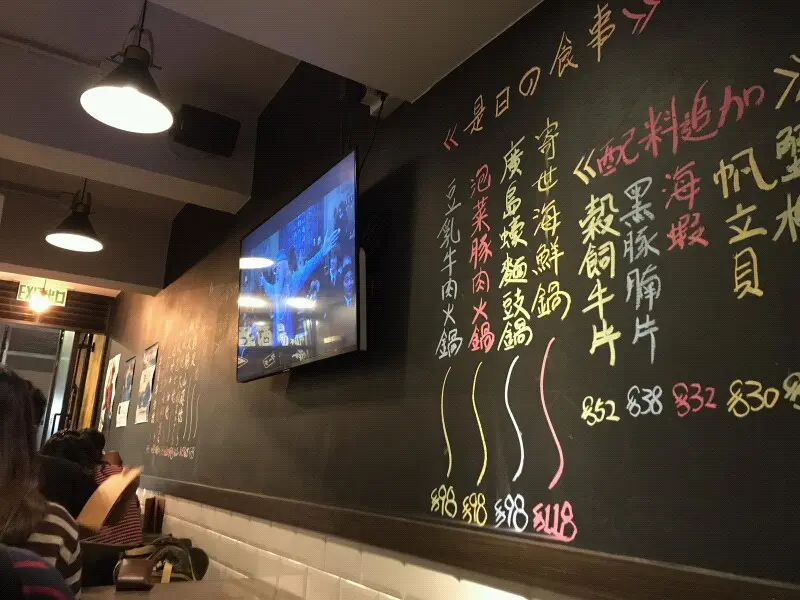 《是日の食事》
寄世海鮮鍋 $118
廣島蠔麵豉鍋 $98
泡菜豚肉火鍋 $98
豆乳牛肉火鍋 $98
《配料追加》
穀飼牛片 $52
黑豚腩片 $38
海蝦 $32
帆立貝 $30
EXIT 出口